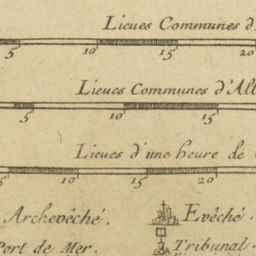 Lieues Communes
5 10 15 20
Lieues Communes
5 10 15
Lieues d'une heure de
5 10 15 20
Archevêché. Evêché.
Port de Mer. Tribunal